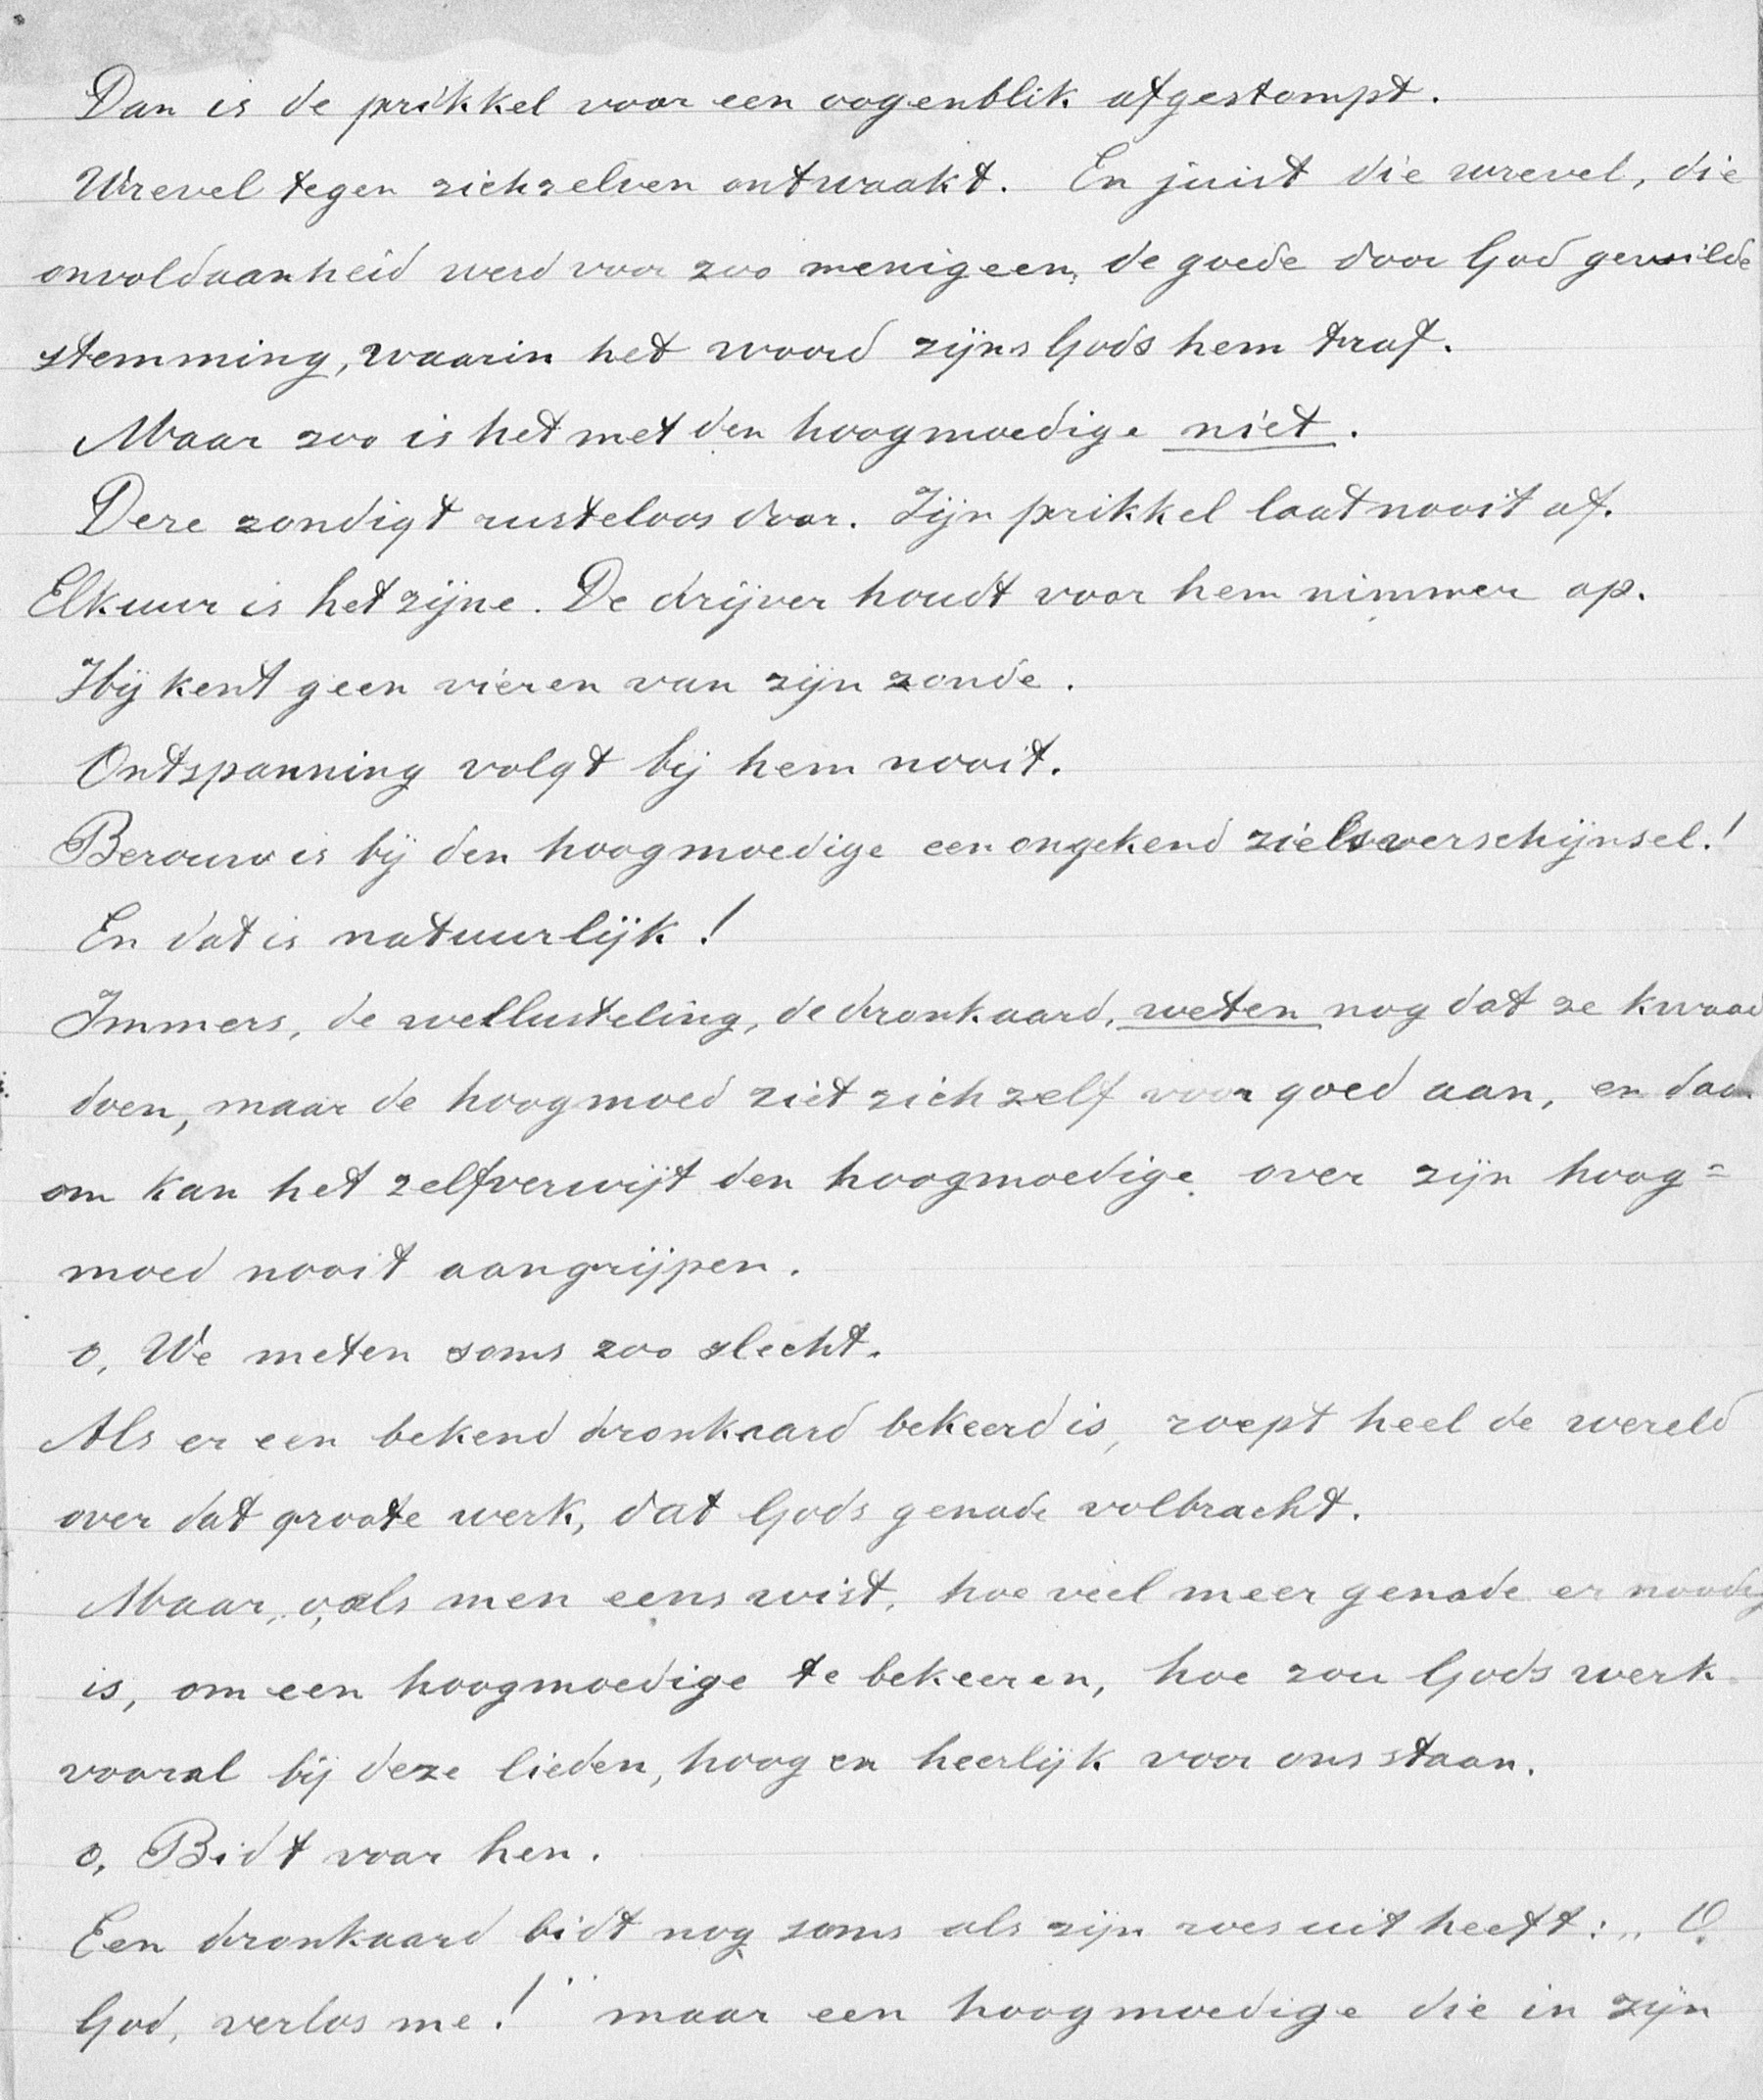 Dan is de prikkel voor een oogenblik afgestompt.
Wrevel tegen zichzelven ontwaakt. En juist die wrevel, die
onvoldaanheid werd voor zoo menigeen, de goede door God gewilde
stemming, waarin het woord zijns Gods hem trof.
Maar zoo is het met den hoogmoedige niet.
Deze zondigt rusteloos door. Zijn prikkel laat nooit af.
Elk uur is het zijne. De drijver houdt voor hem nimmer op.
Hij kent geen vieren van zijn zonde.
Ontspanning volgt bij hem nooit.
Berouw is bij den hoogmoedige een ongekend zielsverschijnsel!
En dat is natuurlijk!
Immers, de wellusteling, de dronkaard, weten nog dat ze kwaad
doen, maar de hoogmoed ziet zich zelf voor goed aan, en daar
om kan het zelfverwijt den hoogmoedige over zijn hoog=
moed nooit aangrijpen.
o, We meten soms zoo slecht.
Als er een bekend dronkaard bekeerd is, roept heel de wereld
over dat groote werk, dat Gods genade volbracht.
Maar, o, als men eens wist, hoe veel meer genade er noodig
is, om een hoogmoedige te bekeeren, hoe zou Gods werk
vooral bij deze lieden, hoog en heerlijk voor ons staan.
o, Bidt voor hen.
Een dronkaard bidt nog soms als zijn roes uit heeft: „O
God, verlos me!" maar een hoogmoedige die in zijn